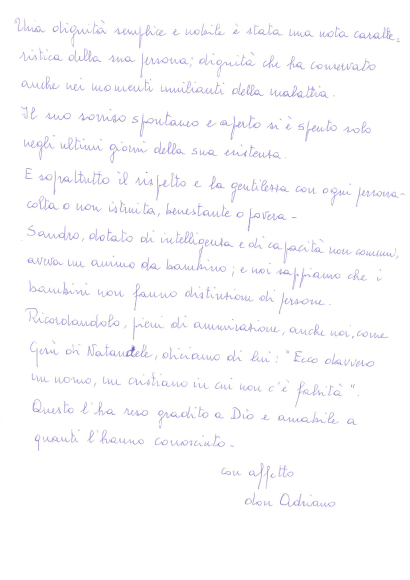 Una dignità semplice e nobile è stata una nota caratte=
ristica della sua persona; dignità che ha conservato
anche nei momenti umilianti della malattia.
Il suo sorriso spontaneo e aperto si è spento solo
negli ultimi giorni della sua esistenza.
E soprattutto il rispetto e la gentilezza con ogni persona-
colta o non istruita, benestante o povera -
Sandro, dotato di intelligenza e di capacità non comuni,
aveva un animo da bambino; e noi sappiamo che i
bambini non fanno distinzione di persone.
Ricordandolo, pieni di ammirazione, anche noi, come
Gesù di Natanaele, diciamo di lui: "Ecco davvero
un uomo, un cristiano in cui non c'è falsità".
Questo l'ha reso gradito a Dio e amabile a
quanti l'hanno conosciuto -
con affetto
don Adriano